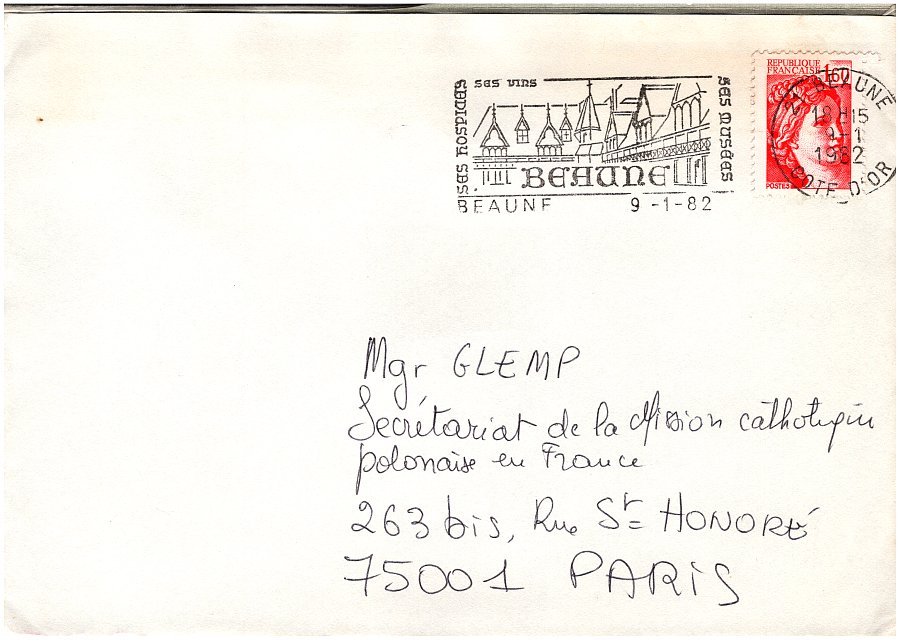 SES HOSPICES
SES VINS
SES MUSÉES
BEAUNE
BEAUNE 9 -1-82
REPUBLIQUE
FRANÇAISE 1,60
POSTES
21 BEAUNE
18 H15
9-1
1982
COTE D'OR
Mgr GLEMP
Secrétariat de la Mission catholique
polonaise en France
263 bis, Rue St HONORÉ
75001 PARIS